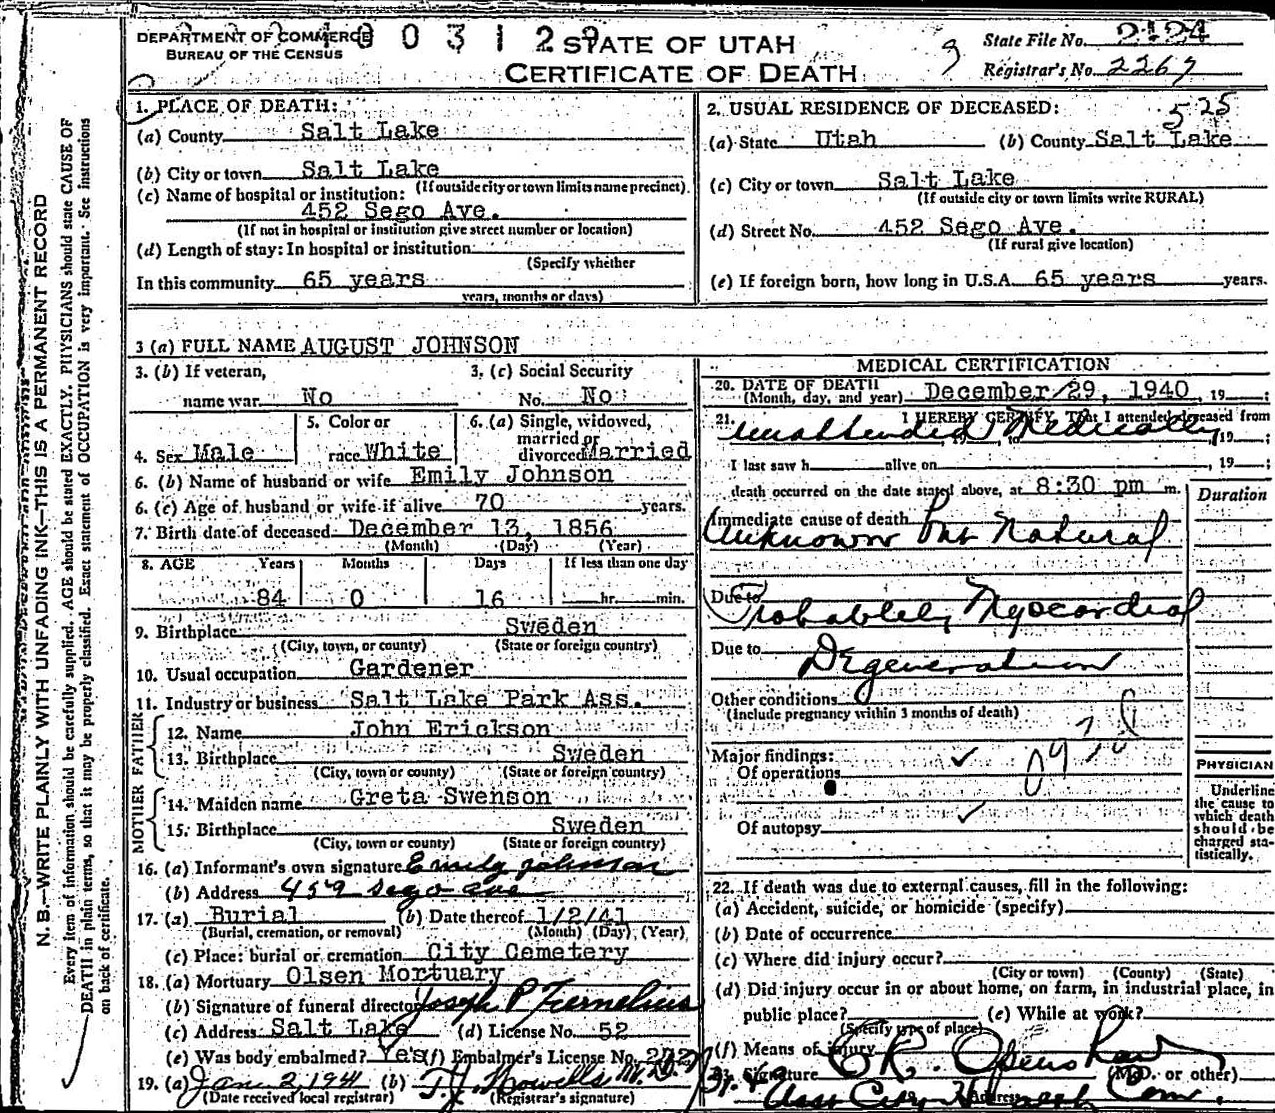 DEPARTMENT OF COMMERCE
BUREAU OF THE CENSUS
STATE OF UTAH
CERTIFICATE OF DEATH
State File No. 2124
Registrar's No. 2267
N. B.—WRITE PLAINLY WITH UNFADING INK—THIS IS A PERMANENT RECORD
Every item of information should be carefully supplied. AGE should be stated EXACTLY. PHYSICIANS should state CAUSE OF
DEATH in plain terms, so that it may be properly classified. Exact statement of OCCUPATION is very important. See instructions
on back of certificate.
1. PLACE OF DEATH:
(a) County Salt Lake
(b) City or town Salt Lake
(If outside city or town limits name precinct)
(c) Name of hospital or institution:
452 Sego Ave.
(If not in hospital or institution give street number or location)
(d) Length of stay: In hospital or institution
(Specify whether
In this community 65 years
years, months or days)
2. USUAL RESIDENCE OF DECEASED: 525
(a) State Utah (b) County Salt Lake
(c) City or town Salt Lake
(If outside city or town limits write RURAL)
(d) Street No. 452 Sego Ave.
(If rural give location)
(e) If foreign born, how long in U.S.A. 65 years years.
3 (a) FULL NAME AUGUST JOHNSON
3. (b) If veteran, name war No
3. (c) Social Security No. No
4. Sex Male
5. Color or race White
6. (a) Single, widowed, married or divorced Married
6. (b) Name of husband or wife Emily Johnson
6. (c) Age of husband or wife if alive 70 years.
7. Birth date of deceased December 13, 1856
(Month) (Day) (Year)
8. AGE Years Months Days If less than one day
84 0 16 hr. min.
9. Birthplace Sweden
(City, town, or county) (State or foreign country)
10. Usual occupation Gardener
11. Industry or business Salt Lake Park Ass.
FATHER
12. Name John Erickson
13. Birthplace Sweden
(City, town or county) (State or foreign country)
MOTHER
14. Maiden name Greta Swenson
15. Birthplace Sweden
(City, town or county) (State or foreign country)
16. (a) Informant's own signature Emily Johnson
(b) Address 459 Sego ave
17. (a) Burial (b) Date thereof 1/2/41
(Burial, cremation, or removal) (Month) (Day) (Year)
(c) Place: burial or cremation City Cemetery
18. (a) Mortuary Olsen Mortuary
(b) Signature of funeral director Joseph P Fernelius
(c) Address Salt Lake (d) License No. 52
(e) Was body embalmed? Yes (f) Embalmer's License No.
19. (a) Jan. 2, 1941 (b) T. J. Howells M.D.
(Date received local registrar) (Registrar's signature)
MEDICAL CERTIFICATION
20. DATE OF DEATH December 29, 1940, 19
(Month, day, and year)
21. I HEREBY CERTIFY, That I attended deceased from
Unattended Medically 19
I last saw h alive on , 19
death occurred on the date stated above, at 8:30 pm m.
Duration
Immediate cause of death
Unknown but Natural
Due to
Probablely Myocordial
Due to
Degeneration
Other conditions
(Include pregnancy within 3 months of death)
Major findings:
Of operations
Of autopsy
PHYSICIAN
Underline
the cause to
which death
should be
charged sta-
tistically.
22. If death was due to external causes, fill in the following:
(a) Accident, suicide, or homicide (specify)
(b) Date of occurrence
(c) Where did injury occur?
(City or town) (County) (State)
(d) Did injury occur in or about home, on farm, in industrial place, in
public place? (e) While at work?
(Specify type of place)
(f) Means of injury
23. Signature (M.D. or other)
Address
Asst City Health Com.